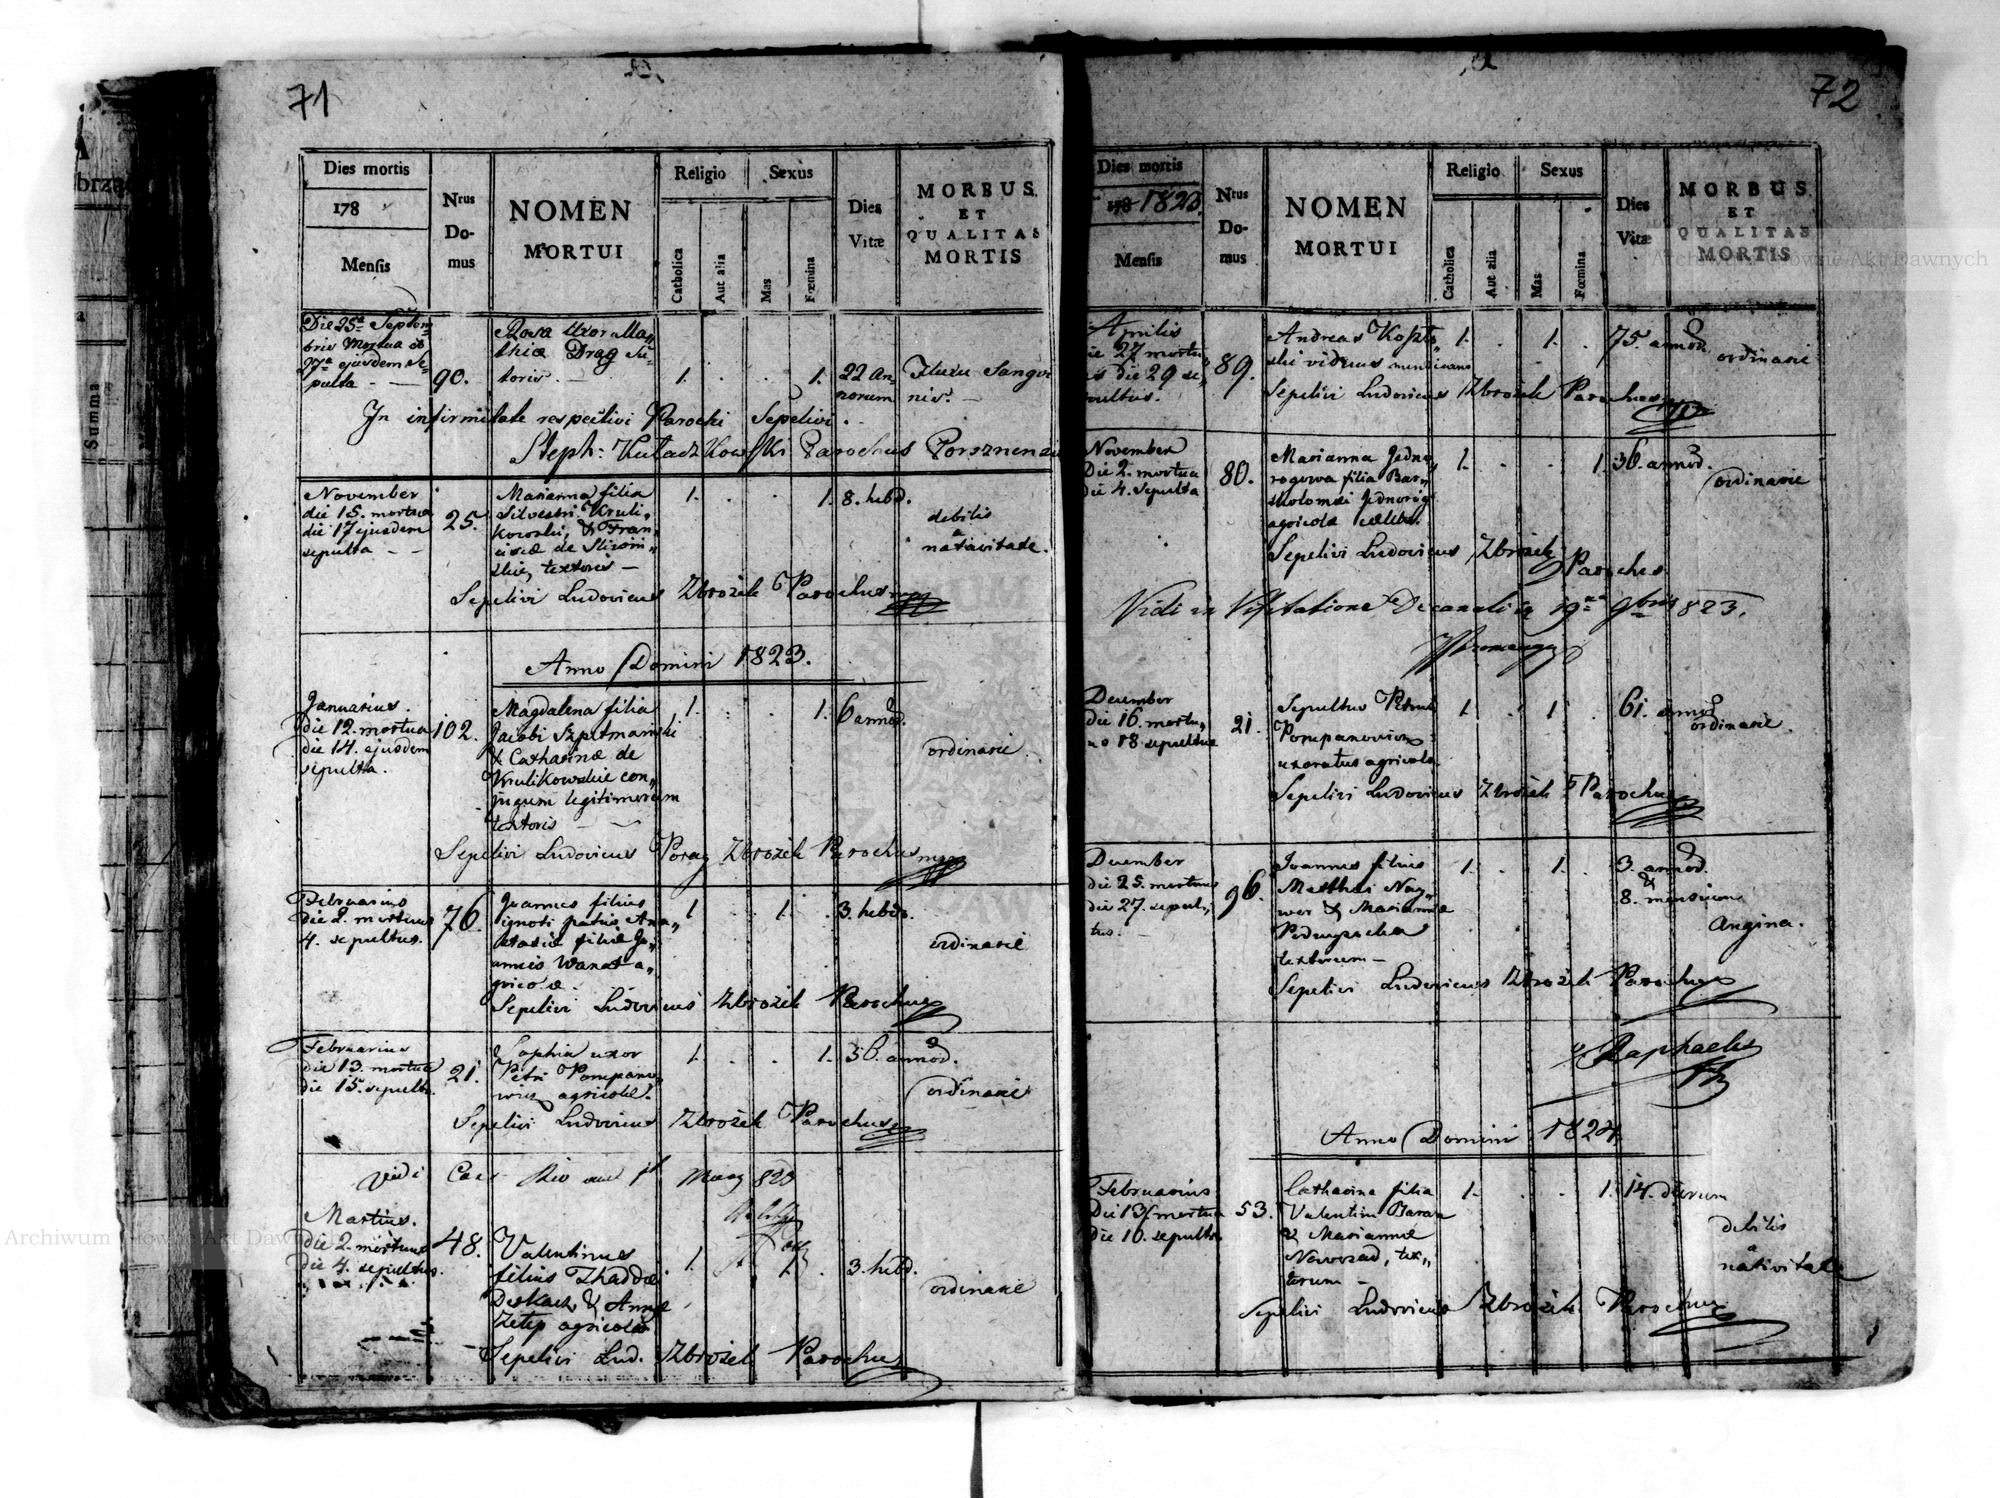 71
Dies mortis
178
Mensis
Nrus Domus
NOMEN MORTUI
Religio
Catholica
Aut alia
Sexus
Mas
Fœmina
Dies Vitæ
MORBUS ET QUALITAS MORTIS
Die 25a Septem
bris Mortua et
27a ejusdem Se-
pulta
90.
Rosa Uxor Ma„
thiæ Drag Su-
toris
1.
1.
22 An-
norum
Fluxu Sangvi
nis.
In infirmitate respectivi Parochi Sepelivi
Steph: Parochus
November
die 15. mortua
die 17 ejusdem
sepulta
25.
Marianna filia
Silvestri Kruli„
kowski, & Fran„
ciscæ de
textoris
1.
1.
8. hebd.
debilis
a
nativitate.
Sepelivi Ludovicus Zbrożek Parochus
Anno Domini 1823.
Januarius.
die 12. mortua
die 14. ejusdem
sepulta.
102.
Magdalena filia
Jacobi Szpitmański
& Catharinæ de
Krulikowskie con„
jugum legitimorum
textoris
1.
1.
6 annod.
ordinarie
Sepelivi Ludovicus Poray Zbrożek Parochus
Februarius
die 2. mortuus
4. sepultus.
76.
Joannes filius
ignoti patris Ana„
stasiæ filiæ Jo„
annis Wanat a„
gricolæ
1
1.
3. hebd.
ordinarie
Sepelivi Ludovicus Zbrożek Parochus
Februarius
die 13. mortua
die 15. sepulta
21.
Sophia uxor
Petri Pompano„
wicz agricolæ.
1.
1.
36. annod.
ordinarie
Sepelivi Ludovicus Zbrożek Parochus
Vidi
Martius.
die 2. mortuus
die 4. sepultus.
48.
Valentinus
filius Thaddei
Deskacz & Annæ
agricolæ
1.
1.
3. hebd.
ordinarie
Sepelivi Lud. Zbrożek Parochus
72
Dies mortis
178 1823.
Mensis
Nrus Domus
NOMEN MORTUI
Religio
Catholica
Aut alia
Sexus
Mas
Fœmina
Dies Vitæ
MORBUS ET QUALITAS MORTIS
Aprilis
die 27 mortu„
us die 29 se„
pultus.
89.
Andreas
viduus mendicans
1.
1.
75. annod
ordinarie
Sepelivi Ludovicus Zbrożek Parochus
November
Die 2. mortua
die 4. Sepulta
80.
Marianna Jedno„
rogowa filia Bar„
tholomæi Jednoróg
agricolæ
1.
1.
36. annod.
ordinarie
Sepelivi Ludovicus Zbrożek
Parochus
Vidi in Visitatione Decanali 19na 9bris 823.
December
die 16. mortu„
us 18 sepultus
21.
Sepultus Petrus
Pompanowicz
uxoratus agricola
1.
1
61. annod
ordinarie.
Sepelivi Ludovicus Zbrożek Parochus
December
die 25. mortuus
die 27. sepul„
tus.
96.
Joannes filius
Matthæi Nag„
& Marianna
textorum
1.
1.
3. annod.
&
8. mensium
Angina.
Sepelivi Ludovicus Zbrożek Parochus
Raphaelis
Anno Domini 1824
Februarius
Die 13. mortua
die 16. sepulta
53.
Catharina filia
Valentini Baran
& Mariannæ
Nawozad, tex„
torum
1.
1.
14. dierum
debilis
a
nativitate
Sepelivi Ludovicus Zbrożek Parochus
Summa
Archiwum Główne Akt Dawnych
Archiwum Główne Akt Dawnych